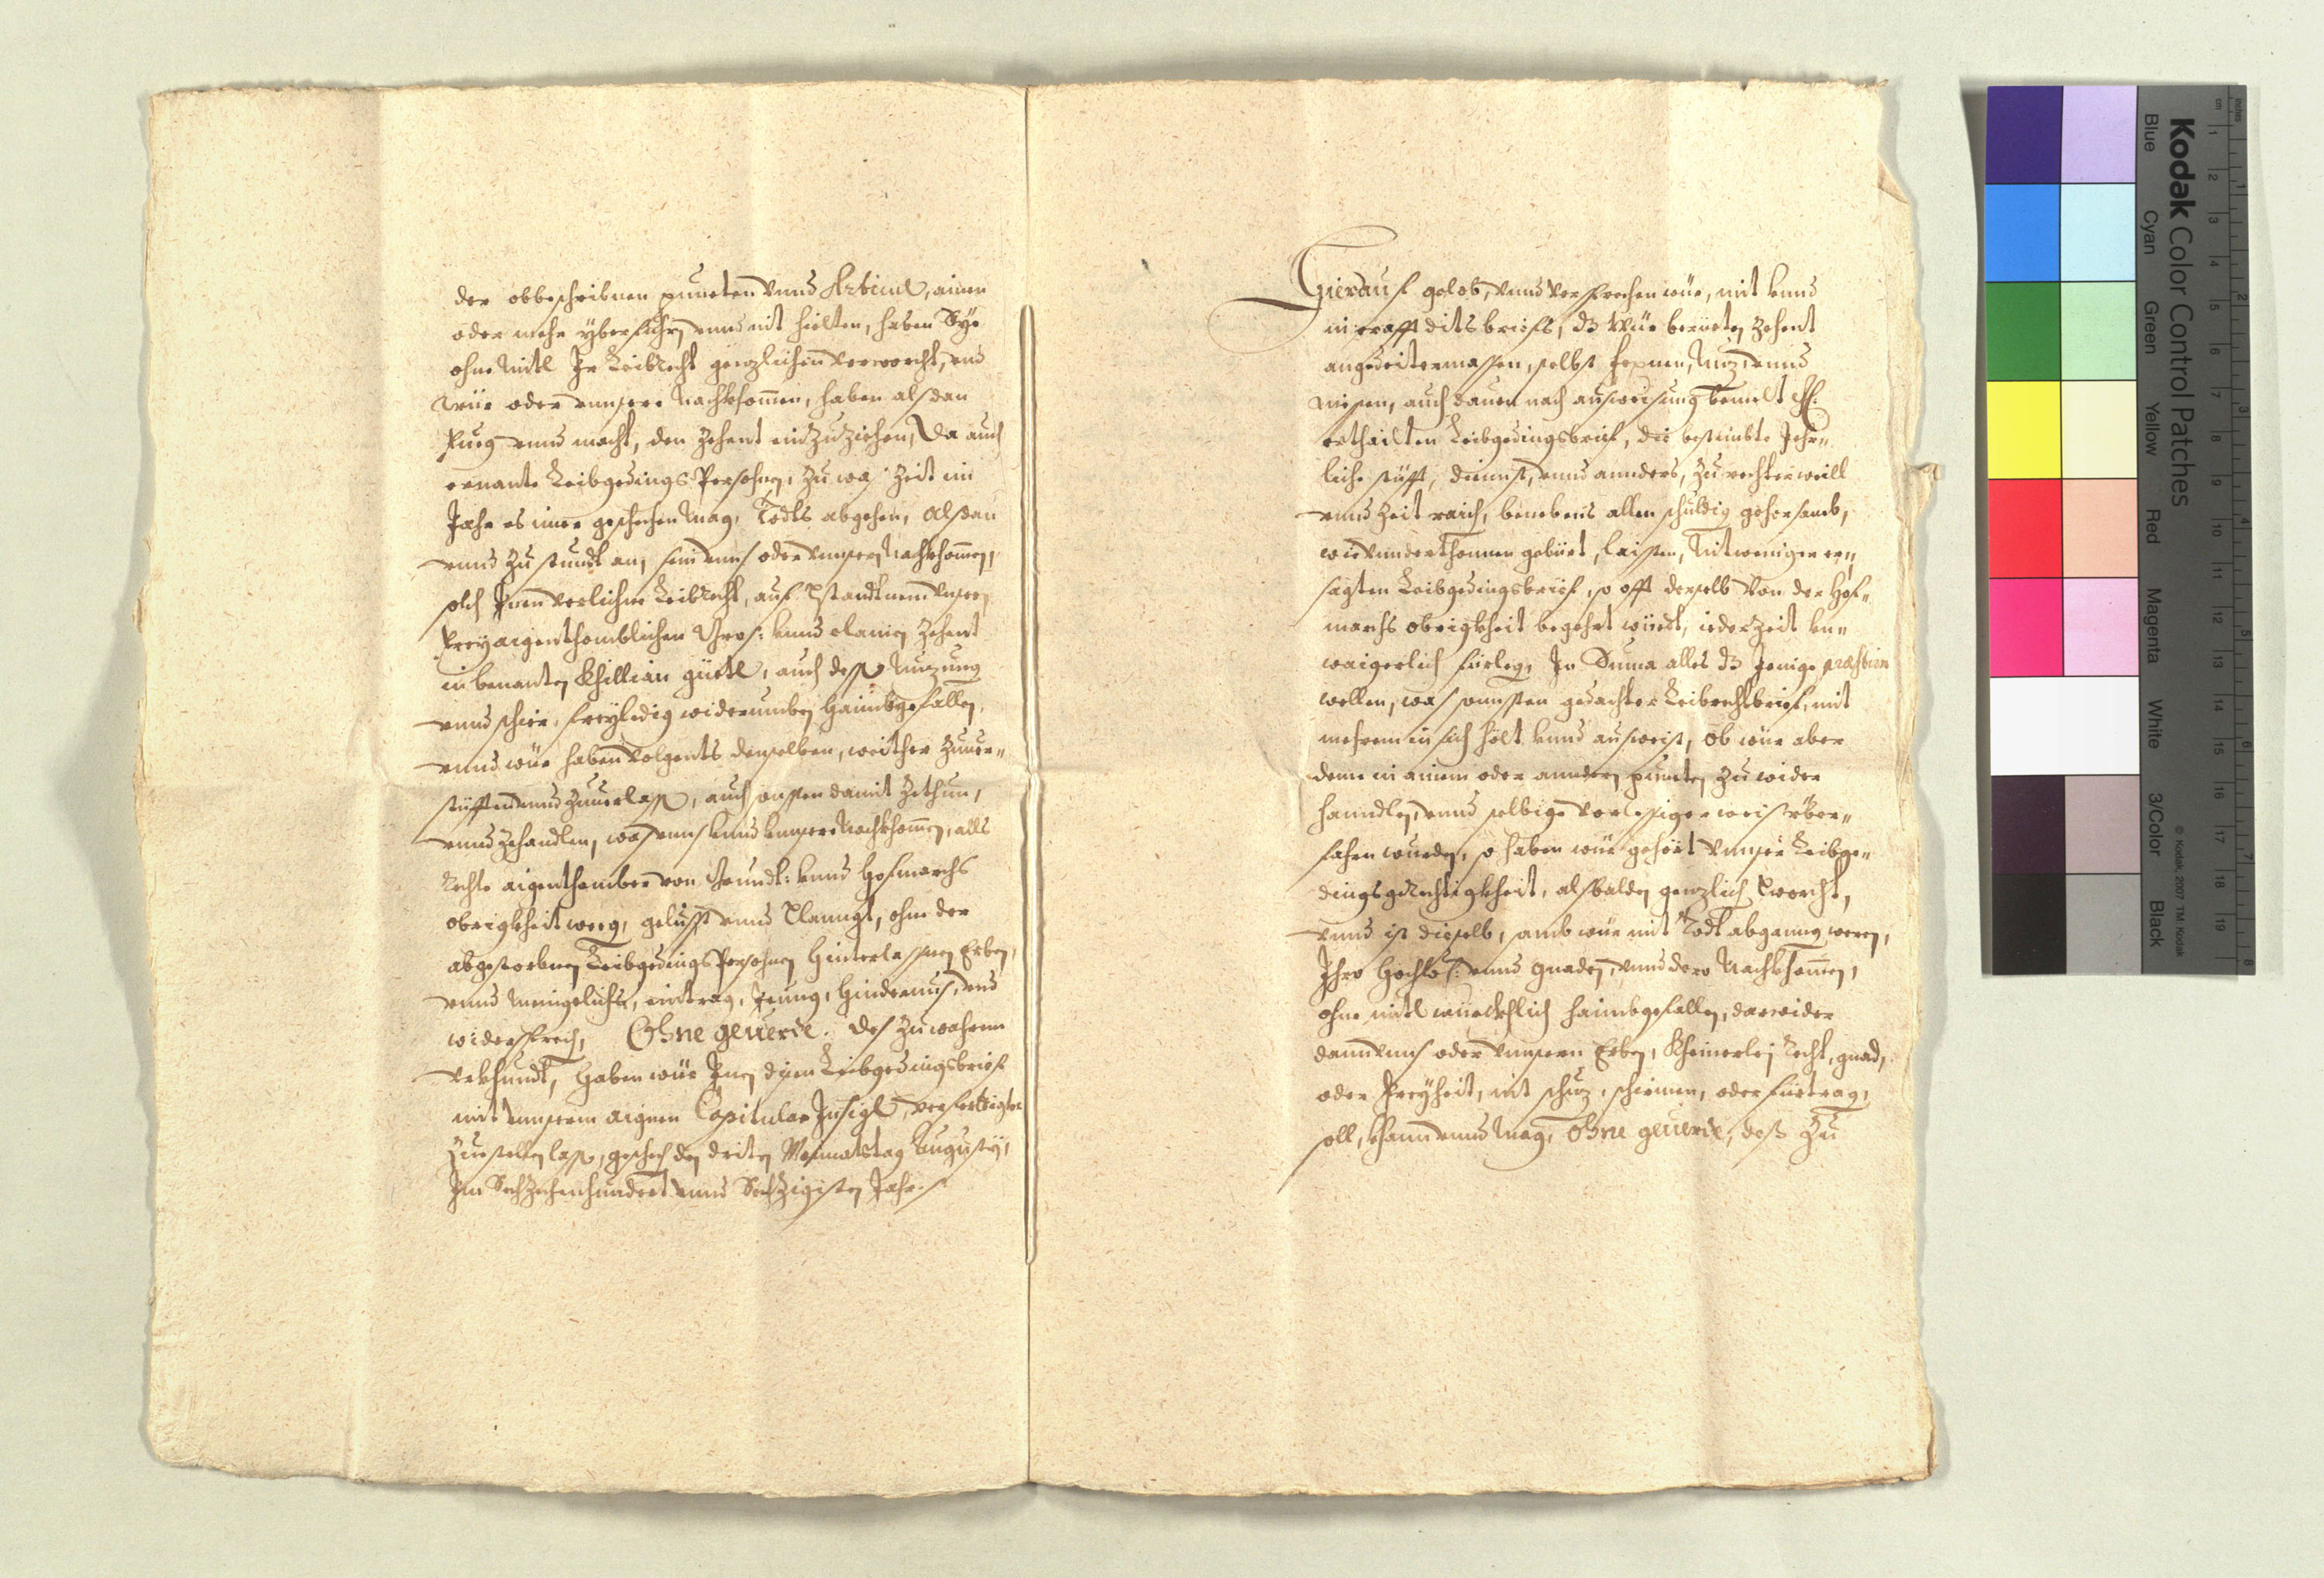 der obbeschribnen puncten vnnd Articul, ainen
oder mehr yberfahrn, vnnd nit hielten, haben Sye
ohne Mitl Ir Leibrecht genzlichen verworcht, vnd
wür oder vnnsere Nachkhomen, haben alßdan
fueg vnnd macht, den Zehent einzuziehen, Da auch
ernante Leibgedings Persohnen, zu was Zeit im
Jahr es imer geschechen mag, Todts abgehen, alßdan
vnnd zu stundt an, sein vnns oder vnnsern Nachkhomen,
solch Inen verlichne Leibrecht, auf vnser
freyaigenthomblichen Gros: vnnd clainen Zehent
in benanten Khillian güetl, auch dess Nuzung
vnnd frey ledig widerumben haimbgefallen,
vnnd wür haben volgents denselben, weither zuuer-
stifften vnnd zuuerlassen, auch sonsten damit zethun,
vnnd zehandlen, was vnns vnnd vnnsere Nachkhomen, alls
rechte aigenthomber von Grundt: vnnd Hofmarchs
obrigkheit wegen, gelusst vnnd verlanngt, ohne der
abgestorbnen Leibgedings Persohnen hinterlassnen Erben,
vnnd Menigelichs, eintrag, Irrung, hindernus, vnd
widersprech, Ohne geuerde. Des zu wahrem
Vrkhundt, haben wür Inen disen Leibgedingsbrief
mit vnnserm aignen Capitular Insigl, verferttigter
Zuestellen lassen, geschech den driten Monnatstag Augusty,
Im Sechzehenhundert vnnd Sechzigisten Jahr.
Hierauf gelob, vnnd versprechen wür, mit vnnd
in crafft dits briefs, dz wür berierten Zehent
angedeitermassen, selbst fexnen, Nuzen vnnd
niessen, auch dauon nach ausweisung bemelt
erthailten Leibgedingsbrief, die bestimbte Jehr-
liche stüfft, diennst, vnnd annders, zu rechter weill
vnnd Zeit raich, benebens allen schuldig gehorsamb,
wie vnnderthonnen gebürt, laisten, Nitweniger er-
sagten Leibgedingsbrief, so offt derselb von der Hof-
marchs obrigkheit begehrt würdt, ieder Zeit vn-
waigerlich fürleg, In Suma alles dz Jenige præstiern
wellen, was sonnsten gedachter Leibrechtbrief, mit
mehrem in sich helt vnnd ausweist, Ob wür aber
deme in ainem oder anndern puncten zu wider
hanndlen, vnnd selbige vorlessiger weis yber-
fahren wurden, so haben wür gehört vnnser Leibge-
dings gerechtigkheit, alßbalden genzlich verworcht,
vnnd ist dieselb, samb wür mit Todt abganng weren,
Ihro Hochlöß: vnnd Gnaden, vnnd dero Nachkhomen,
ohne mitl würckhlich haimbgefallen, darwider
dann vnns oder vnnsern Erben, kheinerley Recht, gnad,
oder Freyheit, nit schuz, schirmen, oder fürtrag,
soll, khann vnnd mag, Ohne geuerde, dess zu